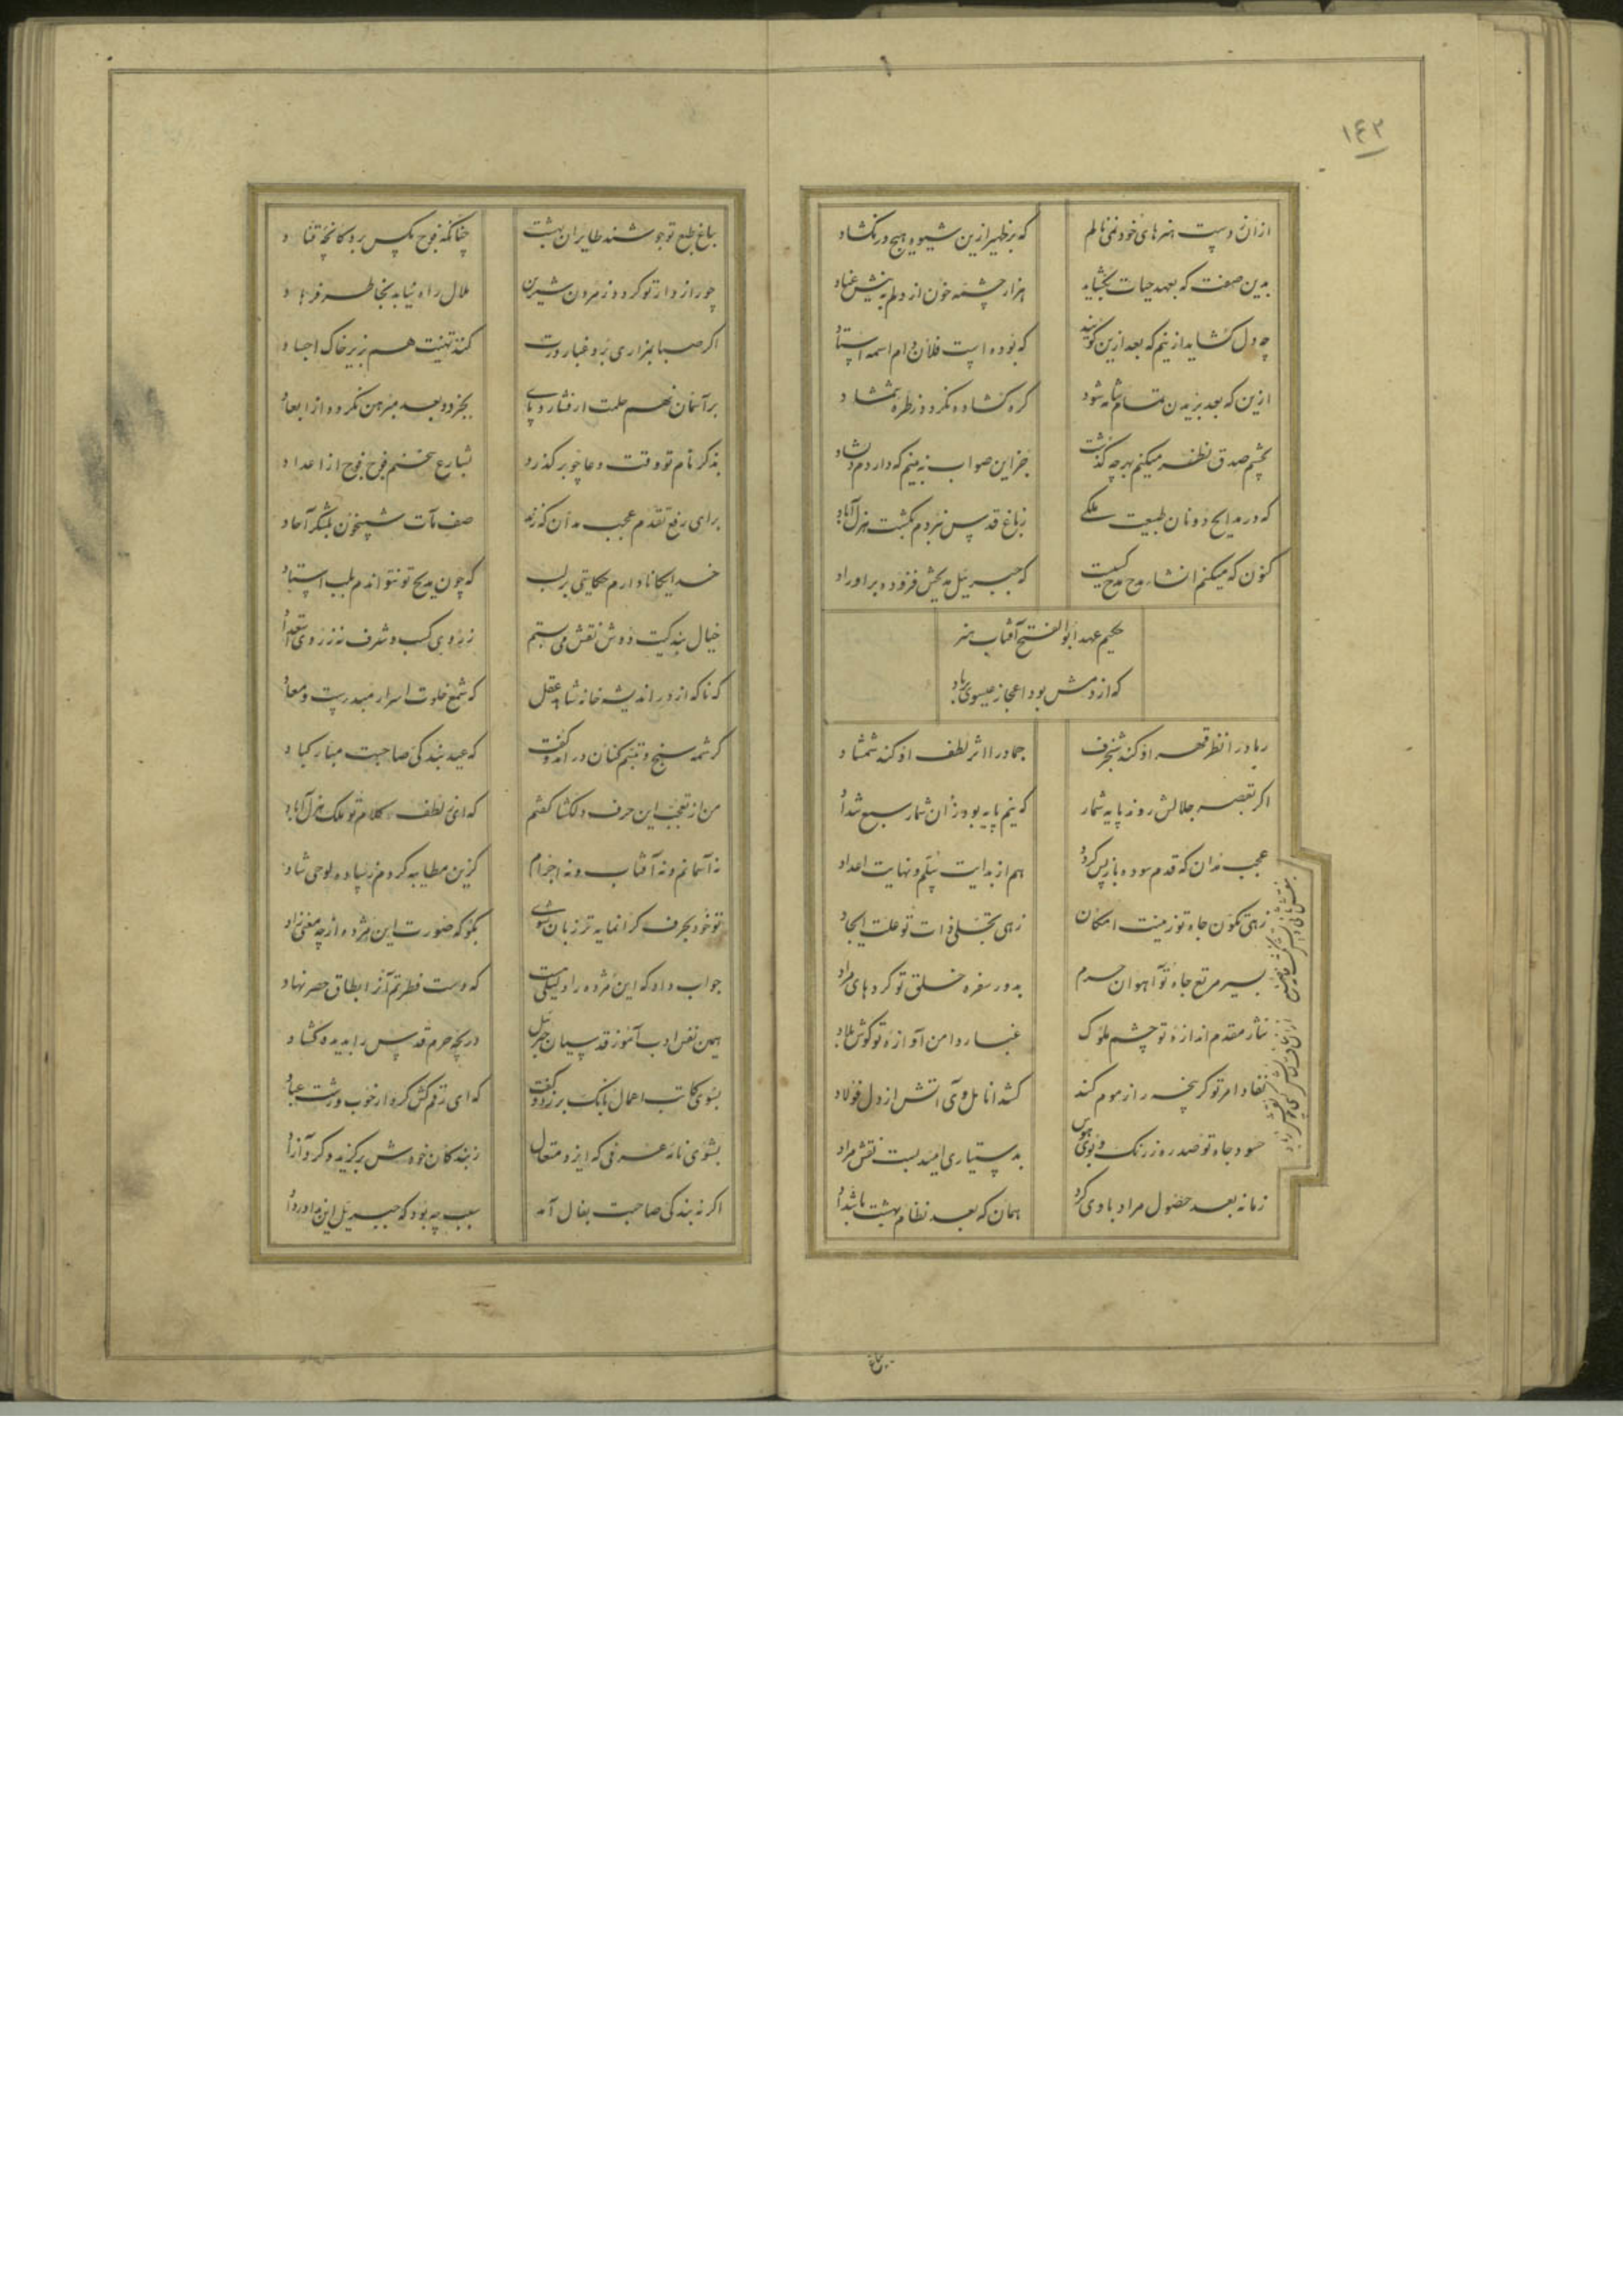 ۱۴۲
ازان دست هنرهای خود نمی نالم
که بر ظهیر ازین شیوه هیچ در نگشاد
بدین صفت که بعهد حیات بخشاید
هزار چشمه خون از دلم
چه دل گشاید ازینم که بعد ازین گویند
که بوده است فلان دام اسمه استاد
ازین که بعد بریدن تمام شانه شود
گره گشاده نگردد ز طره شمشاد
بچشم صدق نظر میکنم بهرچه گذشت
جز این صواب نه بینم که دار دم
که در مدایح دونان طبیعت ملکی
ز باغ قدس نبردم بگشت هزل آباد
کنون که میکنم انشاء مدح مدح کیست
که جبرئیل مدیحش فزوده بر اوراد
حکیم عهد ابوالفتح آفتاب هنر
که از دمش بود اعجاز عیسوی بباد
رماد را نظر قهر او کند شنجرف
جماد را اثر لطف او کند شمشاد
اگر بقصر جلالش رود پایه شمار
که نیم پایه بود زان شمار سبع شداد
عجب مدان که قدم سوده باز پس گردد
هم از بدایت سلم نهایت اعداد
زهی بکون جاه تو زینت امکان
زهی تجلی ذات تو علت ایجاد
بسیر مرتع جاه تو آهوان حرم
بدور سفره خلق تو گردهای مراد
نثار مقدم اندازه تو چشم ملوک
غبار دامن آوازه تو گوش بلاد
نفاد امر تو گر پنجه را ز موم کند
کشد انامل وی آتش از دل فولاد
حسود جاه تو صد ره ز رنگ و بوی هوس
بدستیاری امید بست نقش مراد
زمانه بعد حضول مراد با وی کرد
همان که بعد نظام بهشت با شداد
باغ طبع تو جوشند طایران بهشت
چنانکه فوج مگس بر دکانچه قناد
چو رازدار تو گردد ز مردن شیرین
ملال راه نیابد بخاطر فرهاد
اگر صبا بمزاری برد غبار درت
کند تهنیت هم بزیر خاک اجساد
بر آسمان نهم حلمت ار فشارد پای
بجز دو بعد مبرهن نگردد از ابعاد
بذکر نام تو وقت دعا چو بر گذرد
بشارع سخنم فوج فوج از اعداد
برای رفع تقدم عجب مدان که زند
صف مآت شبیخون بلشکر آحاد
خدایگانا دارم حکایتی بر لب
که چون مدیح تو نتواندم بلب استاد
خیال بندگیت دوش نقش می بستم
ز روی کسب و شرف نه ز روی استعداد
که ناگه از در اندیشه خانه شاهد عقل
که شمع خلوت اسرار مبدءست و معاد
کرشمه سنج و تبسم کنان در آمد و گفت
که عید بندگی صاحبت مبارکباد
من از تعجب این حرف دلگشا گفتم
که ای ز لطف کلام تو ملک هزل آباد
نه آسمانم و نه آفتاب و نه اجرام
کزین مطایبه گردم ز ساده لوحی شاد
تو خود بحرف گرانمایه تر زبان شوی
بگو که صورت این مژده از چه معنی زاد
جواب داد که این مژده را دلیلی هست
که دست فطرتم آنرا بطاق حصر نهاد
همین نفس ادب آموز قدسیان جبریل
دریچه حرم قدس را بدیده گشاد
بسوی کاتب اعمال بانگ بر زد و گفت
که ای رقم کش کردار خوب و زشت عباد
بشوی نامه عرفی که ایزد متعال
ز بندگان خودش برگزید و کرد آزاد
اگر نه بندگی صاحبت بفال آمد
سبب چه بود که جبریل این ندا در داد